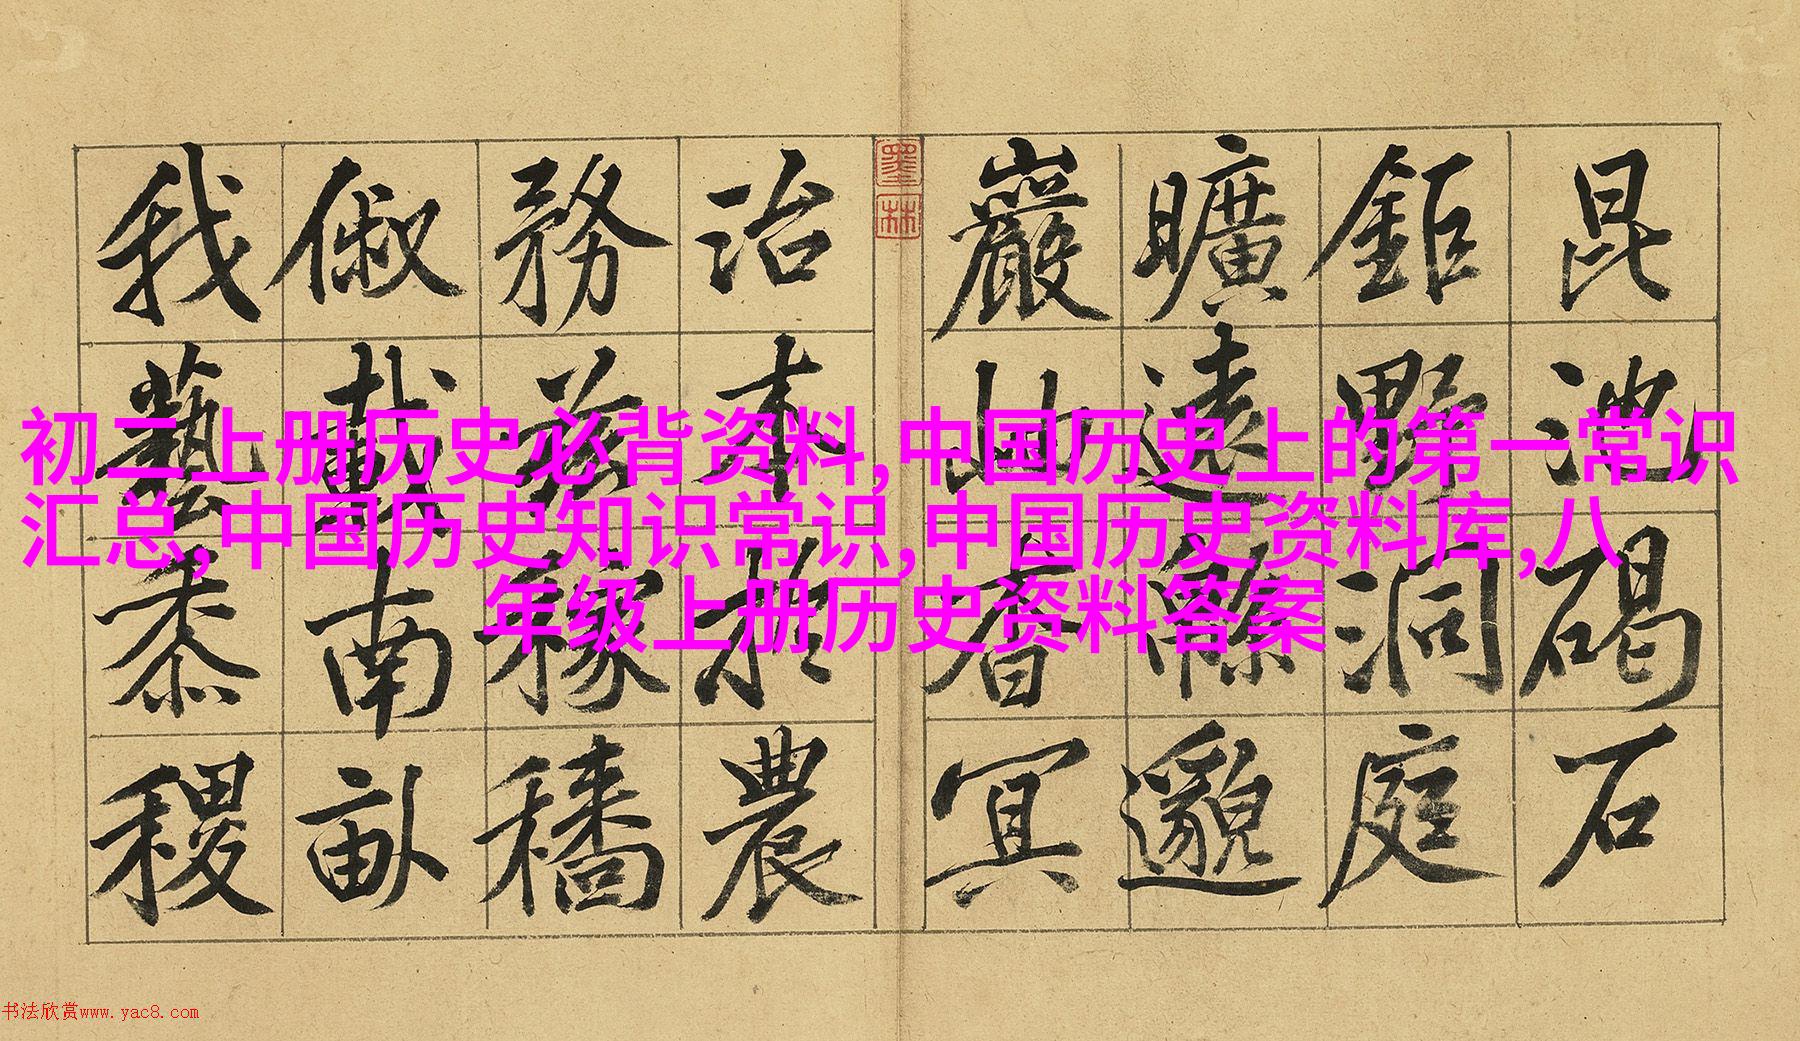 昆池碣石
鉅野洞庭
曠遠緜邈
巖岫杳冥
治本於農
務茲稼穡
俶載南畝
我藝黍稷
墨林
初二上册历史必背资料,中国历史上的第一常识
汇总,中国历史知识常识,中国历史资料库,八
年级上册历史资料答案
书法欣赏www.yac8.com